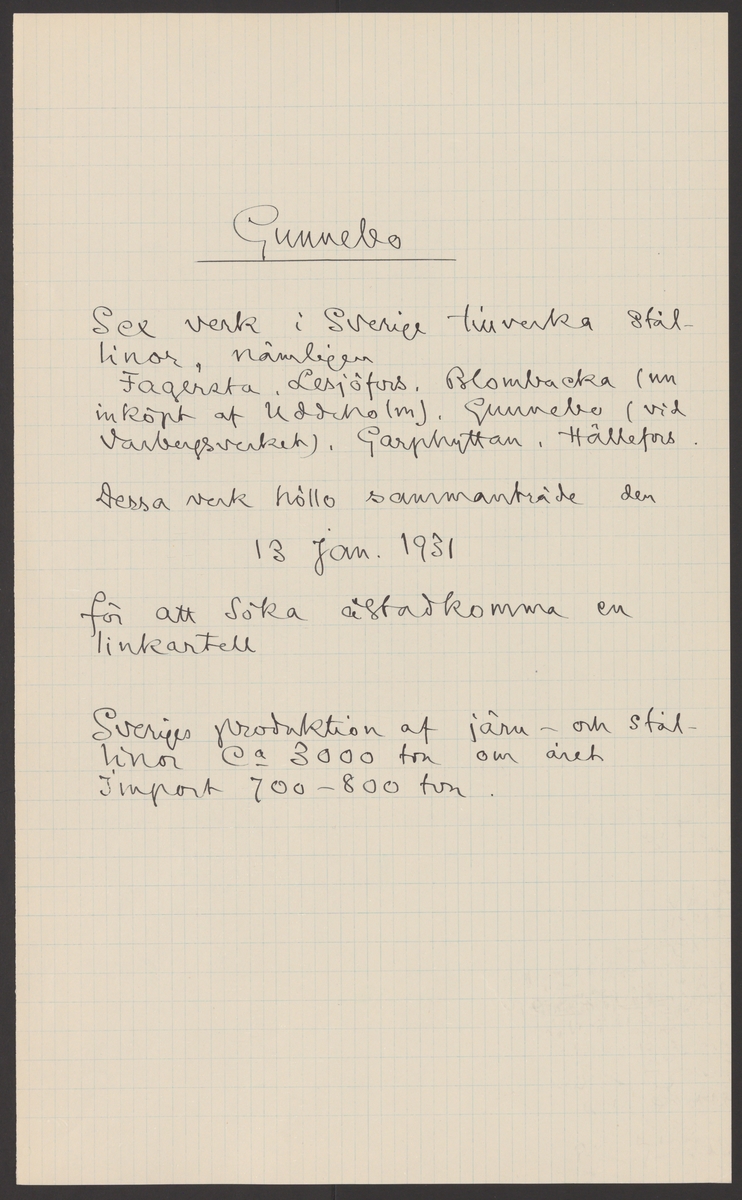 Gunnebo
Sex verk i Sverige tillverka stål-
linor, nämligen
Fagersta, Lesjöfors, Blombacka (nu
inköpt af Uddeholm), Gunnebo (vid
Varbergsverket), Garphyttan, Hällefors.
Dessa verk höllo sammanträde den
13 jan. 1931
för att söka åstadkomma en
linkartell
Sveriges produktion af järn- och stål-
linor ca 3000 ton om året
Import 700-800 ton.